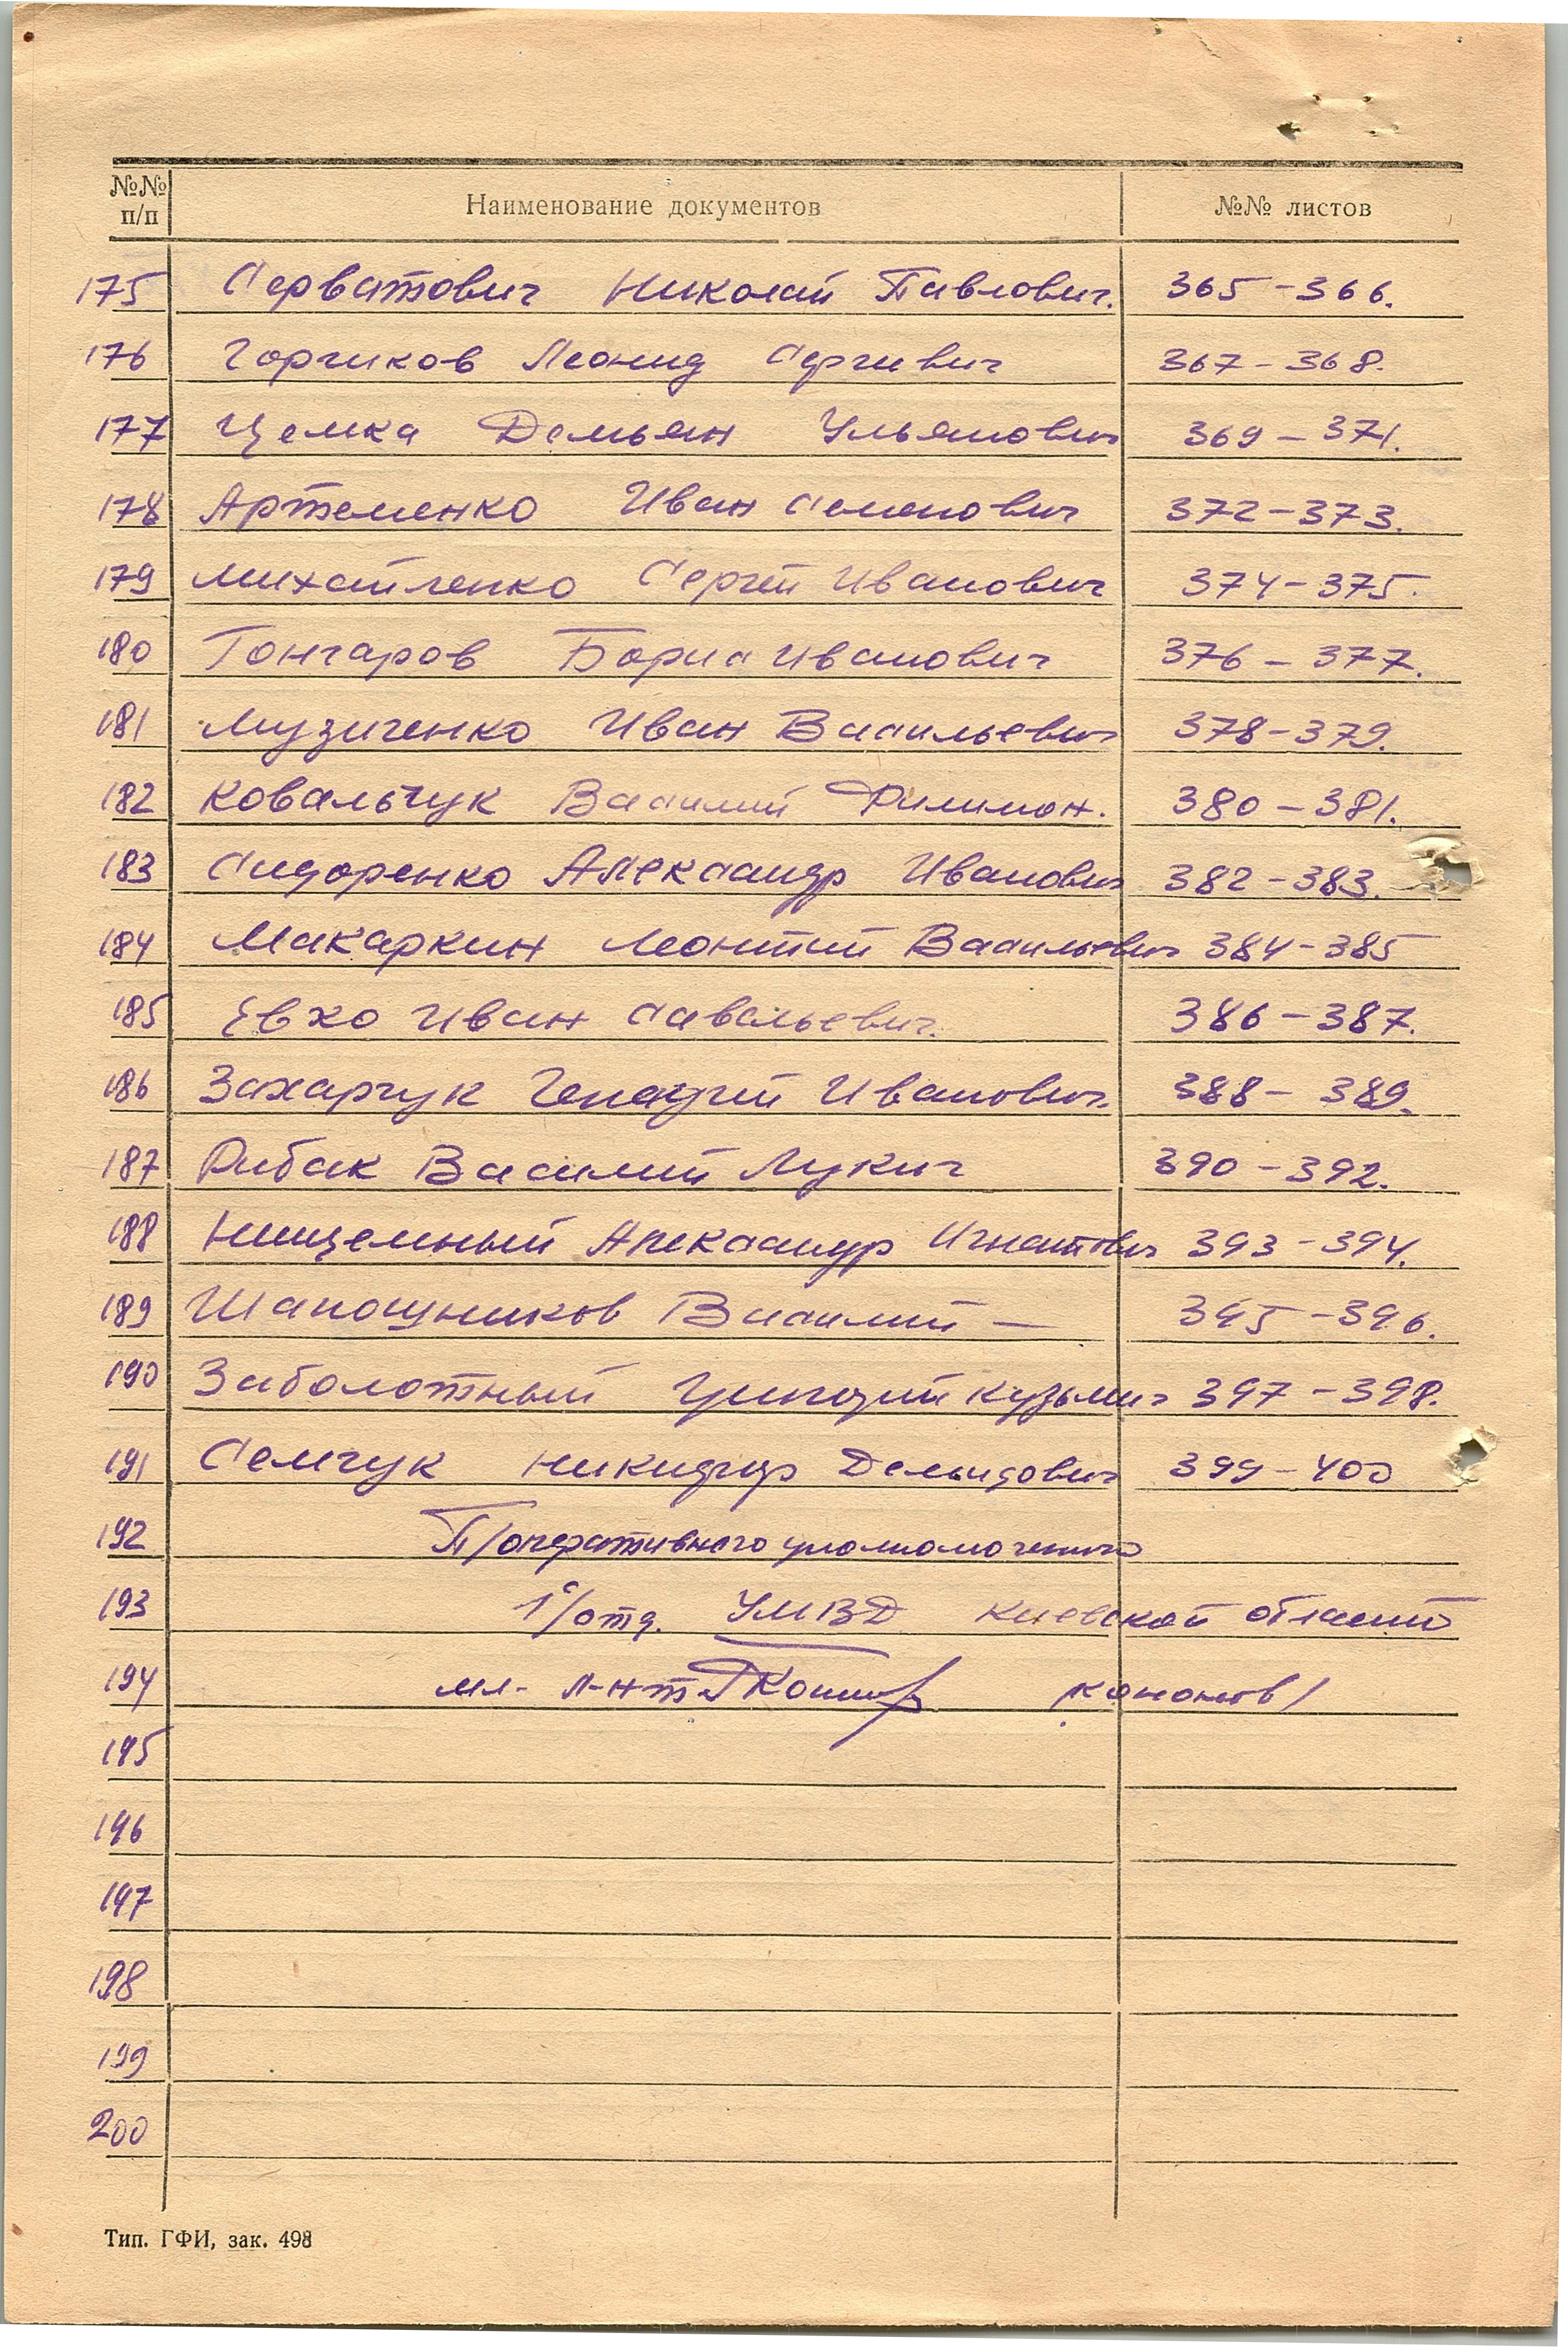 №№ п/п Наименование документов №№ листов
175 Серватович Николай Павлович. 365-366.
176 Горчиков Леонид Сергиевич 367-368.
177 Цемка Демьян Ульянович 369-371.
178 Артеменко Иван Семенович 372-373.
179 Михайленко Сергей Иванович 374-375.
180 Гончаров Борис Иванович 376-377.
181 Музиченко Иван Васильевич 378-379.
182 Ковальчук Василий Филимон. 380-381.
183 Сидоренко Александр Иванович 382-383.
184 Макаркин Леонтий Васильевич 384-385
185 Евхо Иван Савельевич. 386-387.
186 Захарчук Генадий Иванович. 388-389.
187 Рибак Василий Лукич 390-392.
188 Нищемный Александр Игнатович 393-394.
189 Шапошников Василий — 395-396.
190 Заболотный Григорий Кузьмич 397-398.
191 Семчук Никифор Демидович 399-400
192 П/оперативного уполномоченного
193 1°/отд. УМВД Киевской области
194 мл. л-нт /Кононов/
195
196
197
198
199
200
Тип. ГФИ, зак. 498